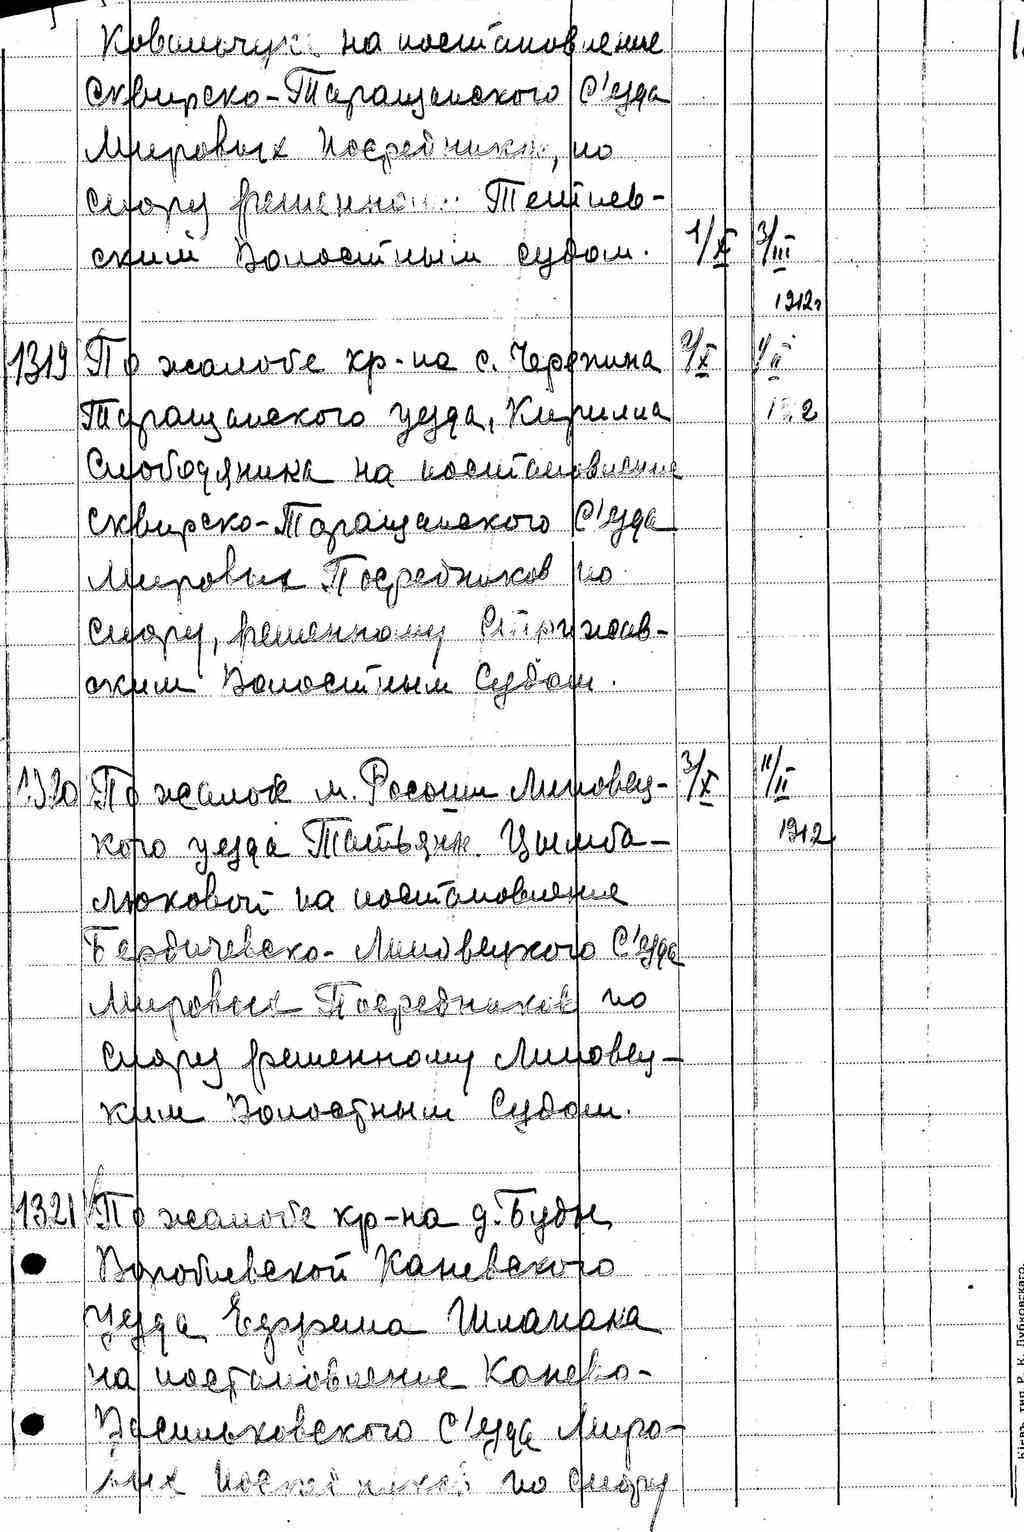 Ковальчука на постановление
Сквирско-Таращанского С'езда
Мировых Посредников, по
спору решенному Тетиев-
ским Волостным судом. 1/X 3/III
1912г
1319 По жалобе кр-на с. Черепина 2/X 1/II
Таращанского уезда, Кирилла 1912
Слободяника на постановление
Сквирско-Таращанского С'езда
Мировых Посредников по
спору, решенному Стрижав-
ским Волостным Судом.
1320 По жалобе м. Росоши Липовец- 3/X 11/II
кого уезда Татьяны Цымба- 1912
люковой на постановление
Бердичевско-Липовецкого С'езда
Мировых Посредников по
спору решенному Липовец-
ким Волостным Судом.
1321 По жалобе кр-на д. Буды
Воробиевской Каневского
уезда Ефрема Шлапака
на постановление Канево-
Васильковского С'езда Миро-
вых Посредников по спору
Кіевъ, тип. Р. К. Лубковскаго.